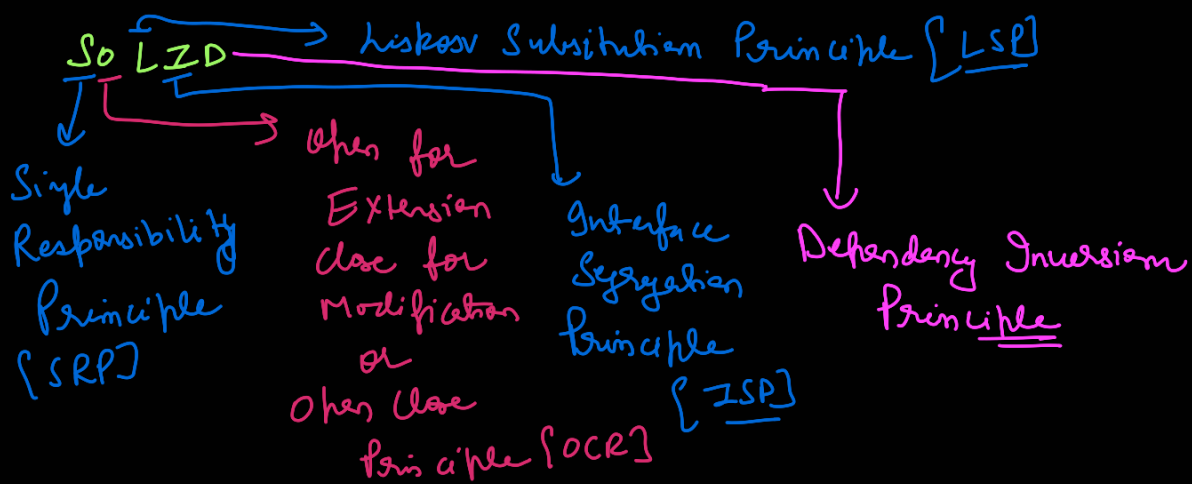 SOLID
Liskosv Subsitution Principle [LSP]
Single
Responsibility
Principle
[SRP]
Open for
Extension
Close for
Modification
or
Open Close
Principle [OCR]
Interface
Segregation
Principle
[ISP]
Dependency Inversion
Principle